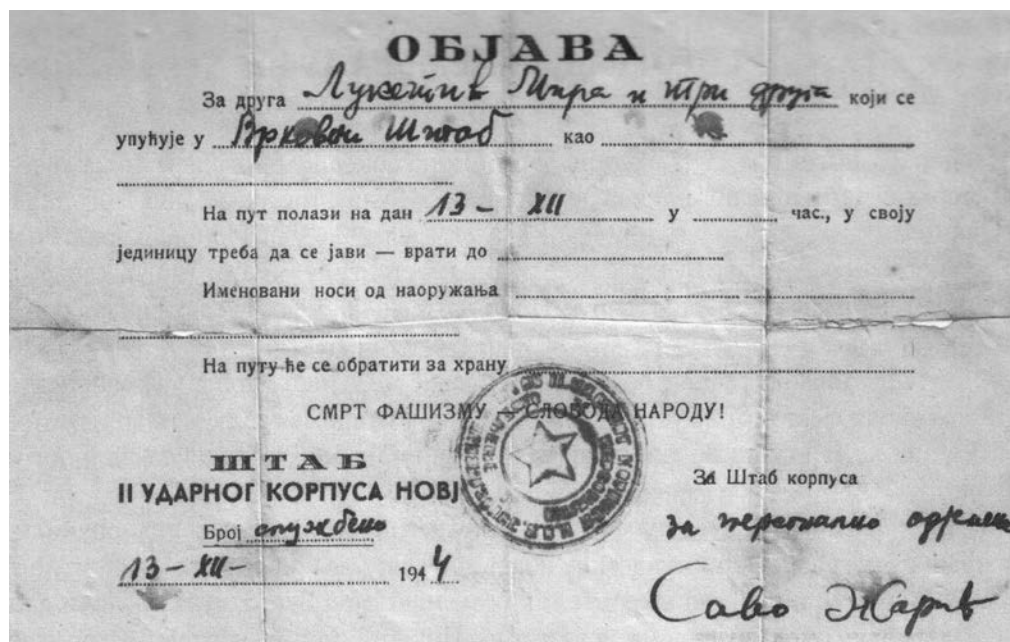 ОБЈАВА
За друга Лукетић Мира и три друга који се
упућује у Врховни Штаб као
На пут полази на дан 13 - XII у час., у своју
јединицу треба да се јави — врати до
Именовани носи од наоружања
На путу ће се обратити за храну
СМРТ ФАШИЗМУ — СЛОБОДА НАРОДУ!
ШТАБ
II УДАРНОГ КОРПУСА НОВЈ
Број службено
13 - XII - 1944
За Штаб корпуса
за персонално
Саво